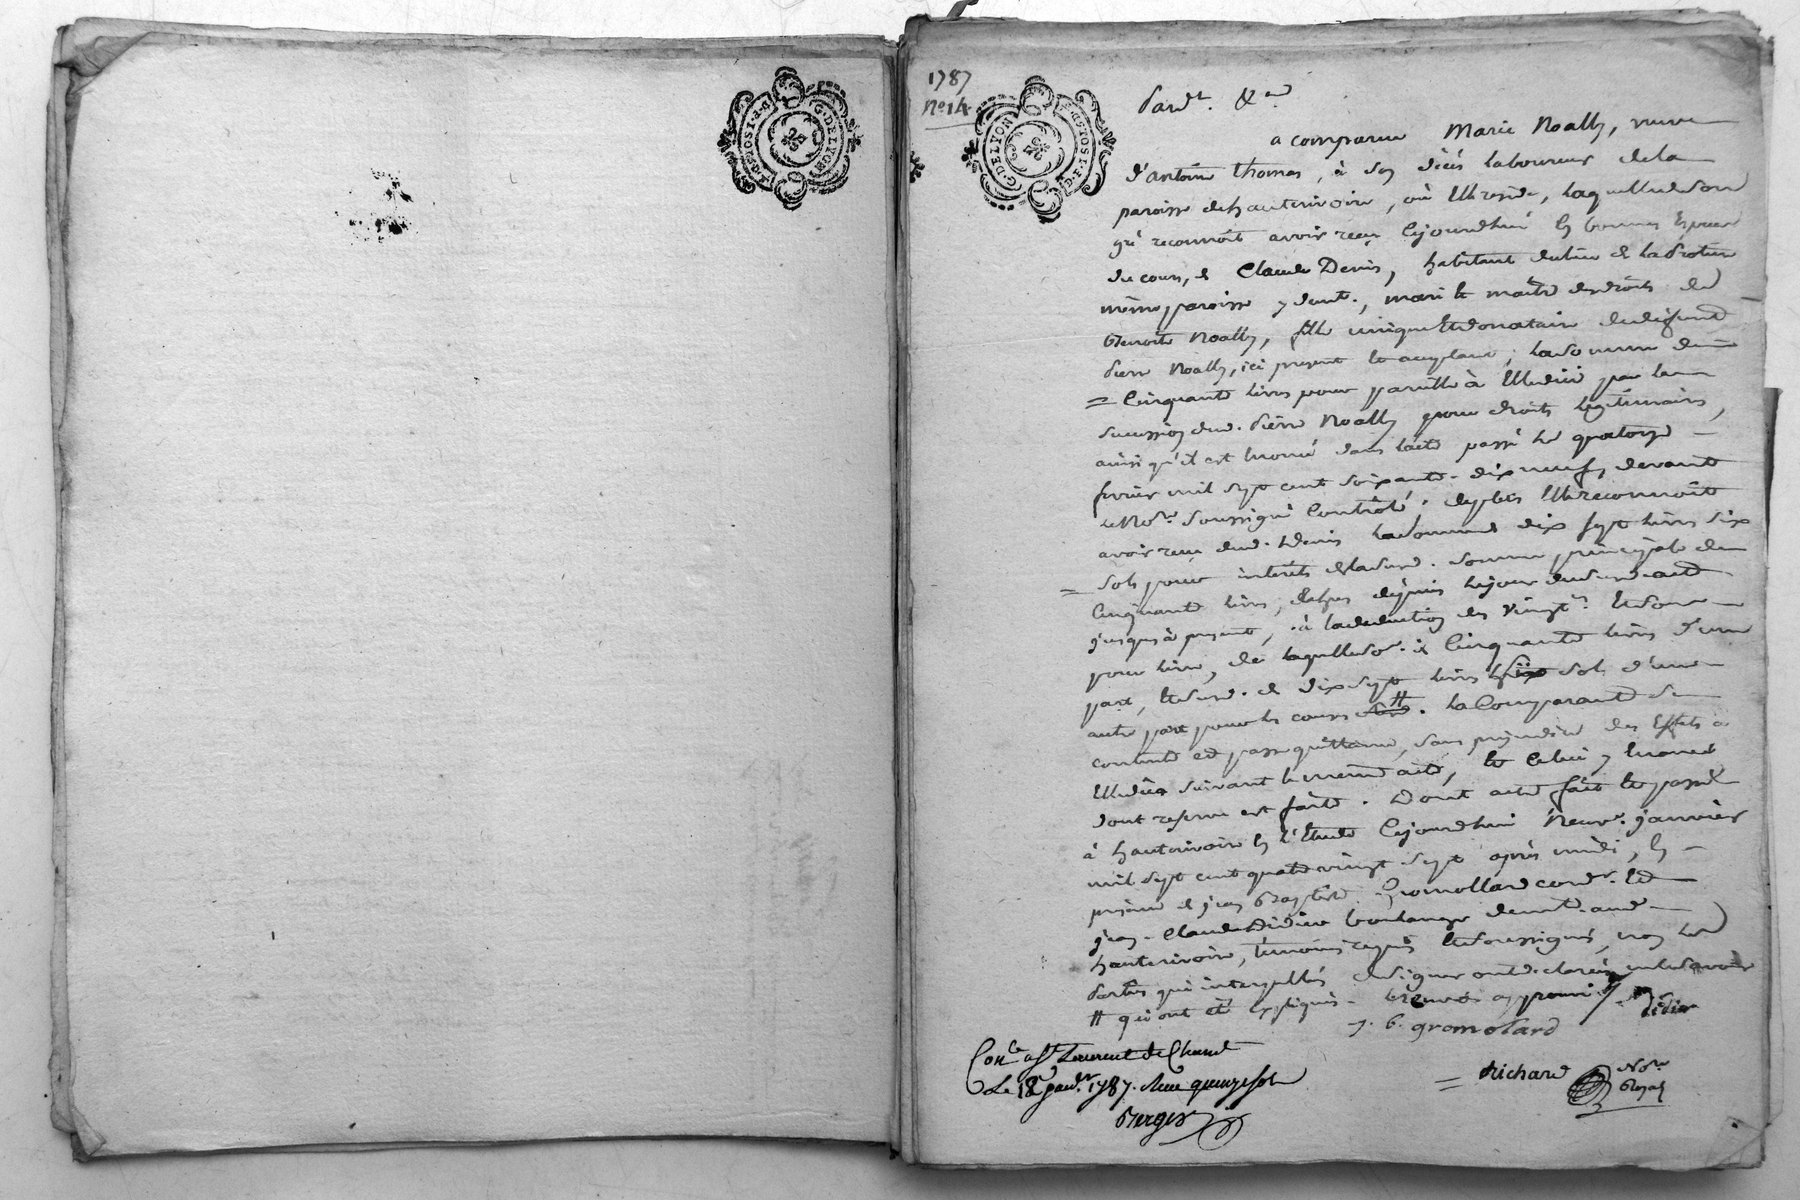 D.P.1SOL.4D
G. DE LYON
1787
N° 14
G. DE LYON
D.P.1SOL.4D
Pard.t &a
a comparue Marie Noally, veuve
d'antoine thomas, à son décés laboureur de la
paroisse de hauterivoire, où Elle reside, laquelle de son
gré reconnoit avoir reçu cejourdhui En bonnes Especes
de cours, de Claude Denis, habitant du lieu de
même paroisse y dem.t, mari et maître des droits de
Benoite Noally, fille unique Et donataire de defunt
pierre Noally, ici present et acceptant, la somme de
= Cinquante livres pour pareille à Elle düe par la
succession dud. pierre Noally pour droits legitimaires,
ainsi qu'il est Enoncé dans l'acte passé le quatorze
fevrier mil sept cent soixante-dix neuf, devant
le No.re soussigné Controlé. de plus Elle reconnoit
avoir reçu dud. Denis la somme de dix sept livres six
= Sols pour interêts de lasusd. somme principale de
Cinquante livres, depuis le jour du susd. acte
jusques à present, à la deduction des vingt.es Et sols
pour livre, de laquelle so.e de Cinquante livres d'une
part, Et susd. de dix sept livres six sols d'une
autre part pour les causes #. la Comparante se
contente et passe quittance, sans prejudice des Effets à
Elle düs suivant le meme acte, et celui y Enoncé
dont reserve est faite. Dont acte fait et passé
à hauterivoire En l'Etude Cejourdhui Neuv.e janvier
mil sept cent quatre vingt sept après midi, En
presence de jean Baptiste Gromollard cord.r Et
jean-Claude Didier boulanger dem.t aud.
hauterivoire, temoins requis Et soussignés, non les
parties qui interpellés de signer ont declaré ne le savoir
# qui ont été Expliqués. le renvoi approuvé
Didier
j. b. gromolard
Con.lé a St Laurent de Cham.t
Le 18 janv.r 1787. Reçu quinze sols
Berger
= Richard No.re Royal